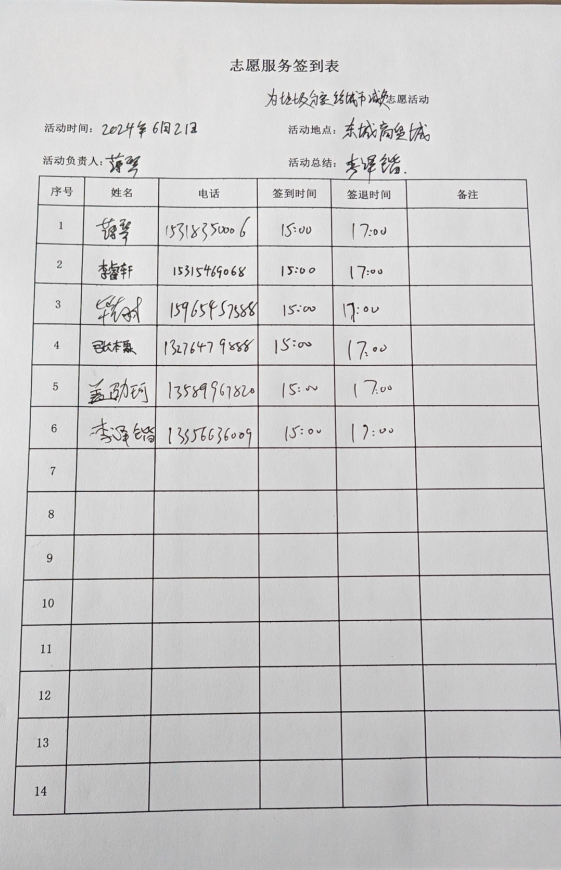 志愿服务签到表
为垃圾分类 给城市减负志愿活动
活动时间：2024年6月21日 活动地点：东城商贸城
活动负责人：薛琴 活动总结：李泽锴.
序号 姓名 电话 签到时间 签退时间 备注
1 薛琴 15318350006 15:00 17:00
2 李睿轩 15315469068 15:00 17:00
3 15965457588 15:00 17:00
4 13276479888 15:00 17:00
5 盖劭珂 13589967820 15:00 17:00
6 李泽锴 13356636009 15:00 17:00
7
8
9
10
11
12
13
14